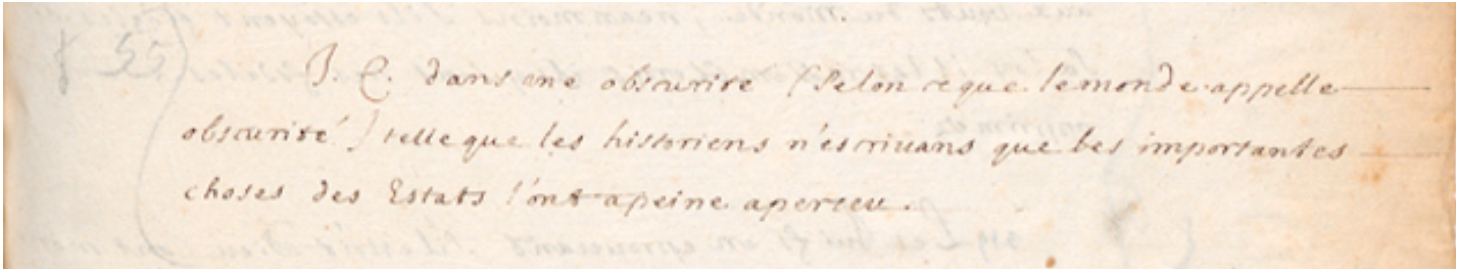 55
J. C. dans une obscurité (selon ce que le monde appelle
obscurité) telle que les historiens n'escrivans que les importantes
choses des Estats l'ont apeine aperceu.